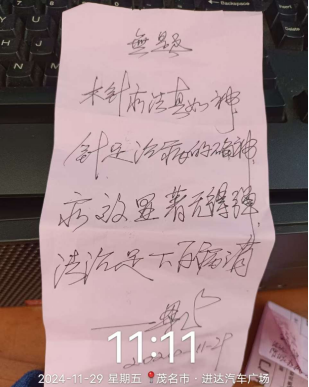 無題
木针疗法真如神
针是治病的确神
疗效显著无得强
法治是下百病消
11:11
2024-11-29 星期五 茂名市·进达汽车广场
Backspace